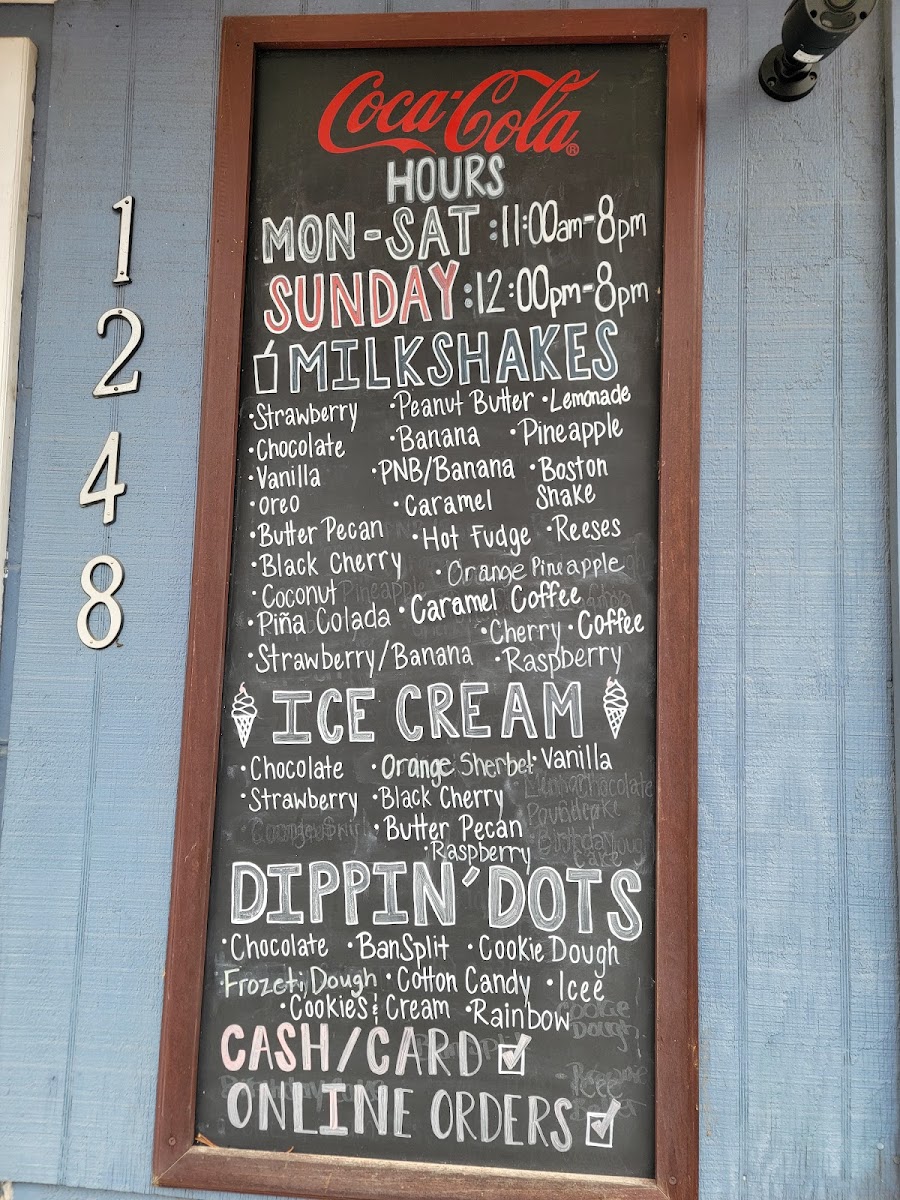 Coca-Cola®
HOURS
MON-SAT :11:00am-8pm
SUNDAY :12:00pm-8pm
MILKSHAKES
•Strawberry •Peanut Butter •Lemonade
•Chocolate •Banana •Pineapple
•Vanilla •PNB/Banana •Boston Shake
•Oreo •Caramel
•Butter Pecan •Hot Fudge •Reeses
•Black Cherry •Orange Pineapple
•Coconut Pineapple •Caramel Coffee
•Piña Colada •Cherry •Coffee
•Strawberry/Banana •Raspberry
ICE CREAM
•Chocolate •Orange Sherbet •Vanilla
•Strawberry •Black Cherry
•Butter Pecan
•Raspberry
Poundcake
Birthday
Cake
DIPPIN' DOTS
•Chocolate •BanSplit •Cookie Dough
•Frozeti Dough •Cotton Candy •Icee
•Cookies & Cream •Rainbow
Cookie
Dough
CASH/CARD
Icee
ONLINE ORDERS
1
2
4
8